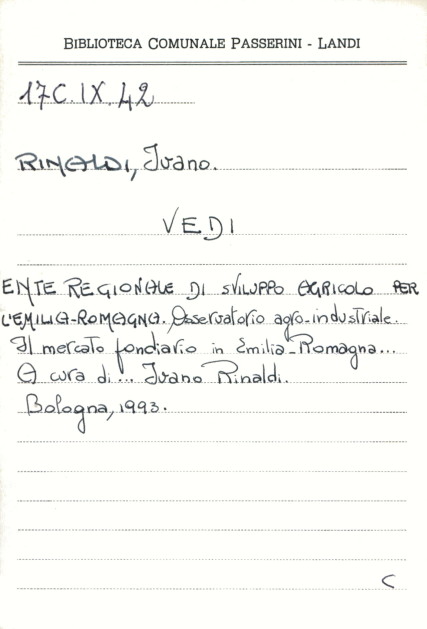 BIBLIOTECA COMUNALE PASSERINI - LANDI
17C.IX.42
RINALDI, Ivano.
VEDI
ENTE REGIONALE DI SVILUPPO AGRICOLO PER
L'EMILIA-ROMAGNA. Osservatorio agro-industriale.
Il mercato fondiario in Emilia-Romagna...
A cura di... Ivano Rinaldi.
Bologna, 1993.
C